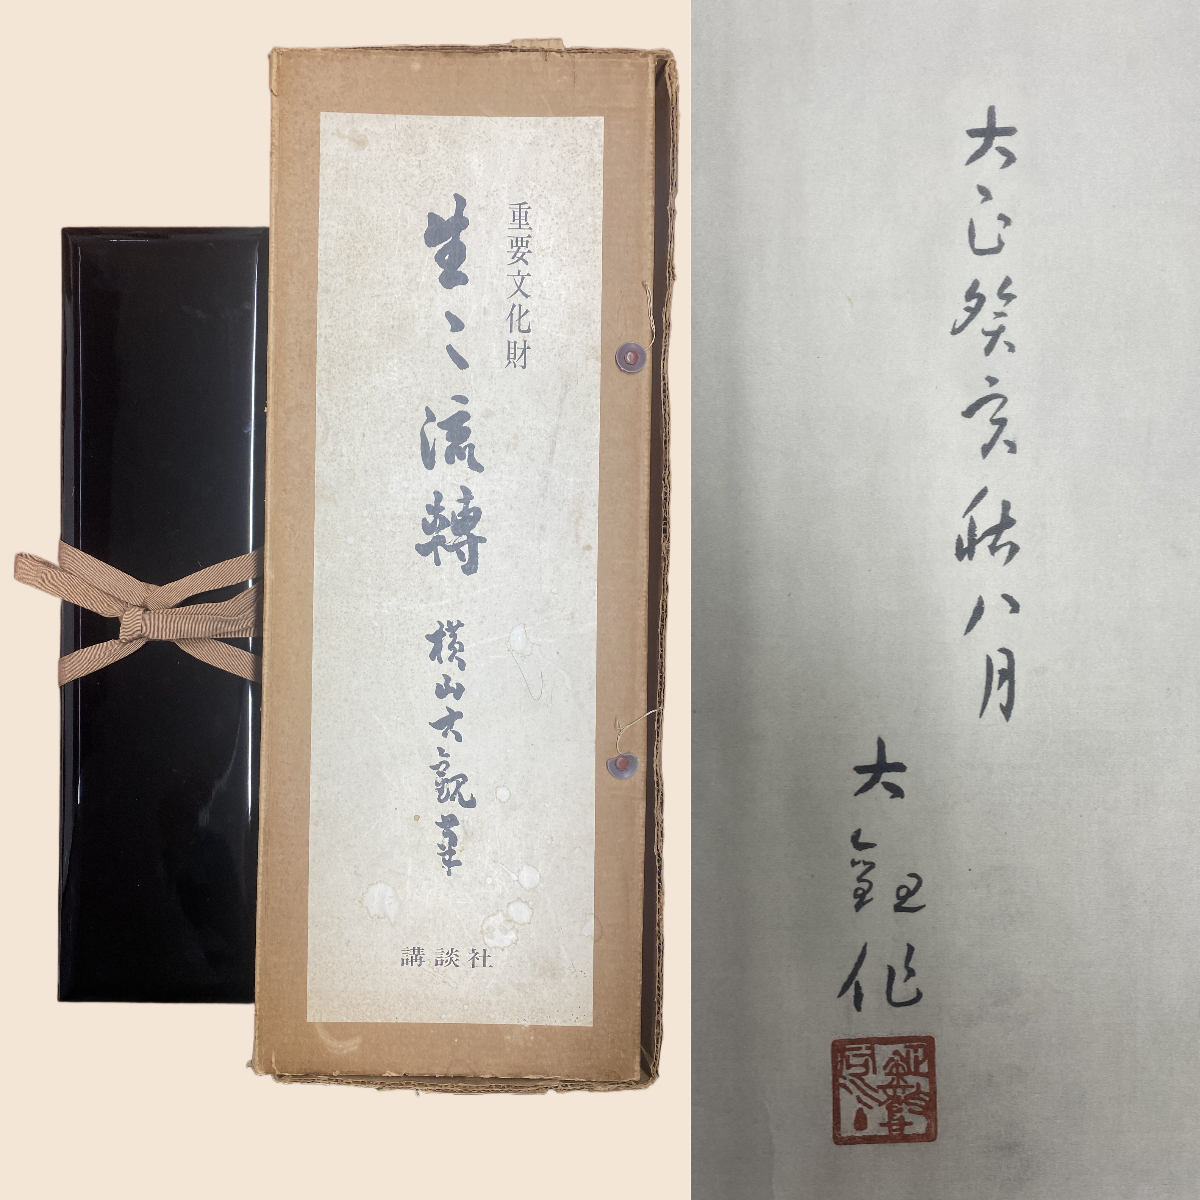 重要文化財
生々流轉
横山大観筆
講談社
大正癸亥秋八月
大観作